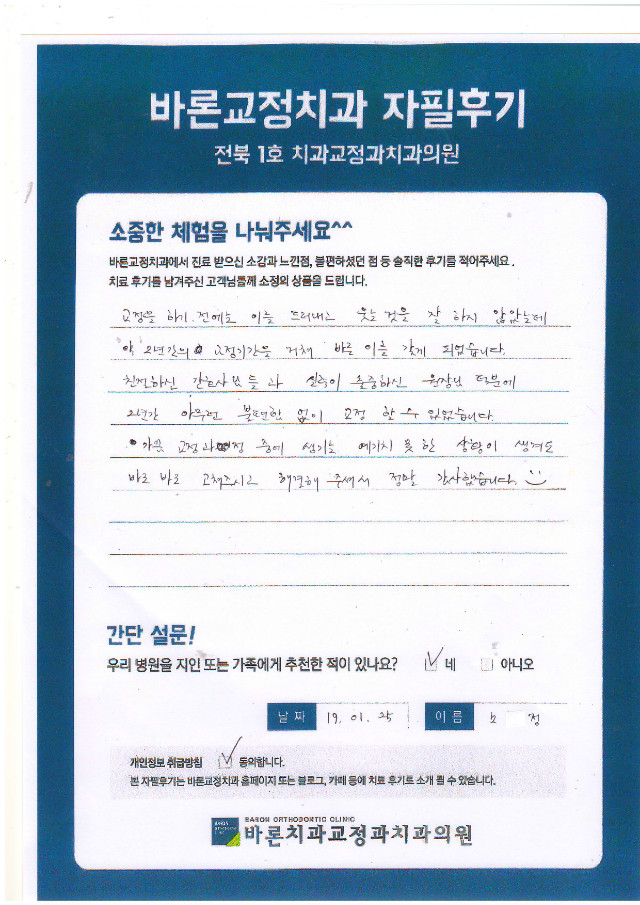 바론교정치과 자필후기
전북 1호 치과교정과치과의원
소중한 체험을 나눠주세요^^
바론교정치과에서 진료 받으신 소감과 느낀점, 불편하셨던 점 등 솔직한 후기를 적어주세요.
치료 후기를 남겨주신 고객님들께 소정의 상품을 드립니다.
교정을 하기 전에는 이를 드러내고 웃는 것을 잘 하지 않았는데
약 2년간의 교정기간을 거쳐 바른 이를 갖게 되었습니다.
친절하신 간호사분들과 실력이 출중하신 원장님 덕분에
2년간 아무런 불편함 없이 교정 할 수 있었습니다.
가끔 교정과정 중에 생기는 예기치 못한 상황이 생겨도
바로 바로 고쳐주시고 해결해 주셔서 정말 감사했습니다.
간단 설문!
우리 병원을 지인 또는 가족에게 추천한 적이 있나요? 네 아니오
날짜 19. 01. 25 이름 노 정
개인정보 취급방침 동의합니다.
본 자필후기는 바론교정치과 홈페이지 또는 블로그, 카페 등에 치료 후기로 소개 될 수 있습니다.
BARON ORTHODONTIC CLINIC
바론치과교정과치과의원